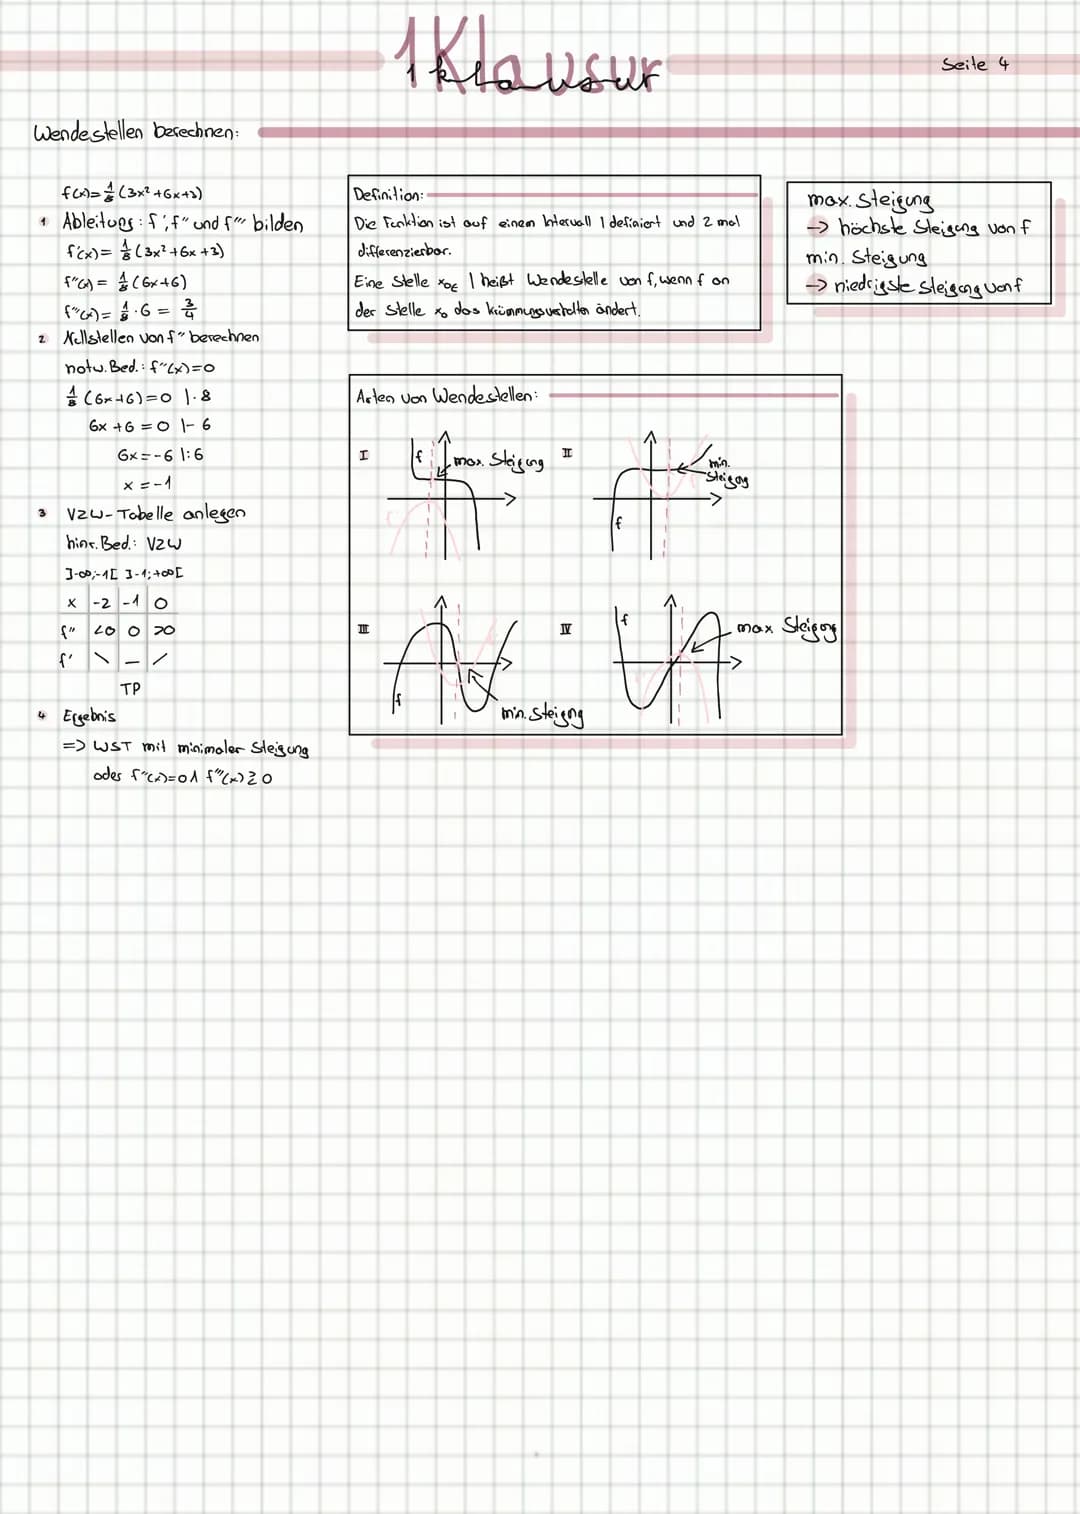 1 Klausur
1 klausur
Seite 4
Wendestellen berechnen:
f(x)=1/8(3x²+6x+3)
1 Ableitung: f', f'' und f''' bilden
f'(x)= 1/8(3x²+6x+3)
f''(x)= 1/8(6x+6)
f'''(x)= 1/8·6 = 3/4
2 Nullstellen von f'' berechnen
notw. Bed.: f''(x)=0
1/8(6x+6)=0 |·8
6x+6=0 |-6
6x=-6 |:6
x=-1
3 VZW-Tabelle anlegen
hinr. Bed.: VZW
]-∞;-1[ ]-1;+∞[
x -2 -1 0
f'' <0 0 >0
f' \ – /
TP
4 Ergebnis
=> WST mit minimaler Steigung
oder f''(x)=0 ∧ f'''(x)≥0
Definition:
Die Funktion ist auf einem Intervall I definiert und 2 mal
differenzierbar.
Eine Stelle x₀∈ I heißt Wendestelle von f, wenn f an
der Stelle x₀ das krümmungsverhalten ändert.
max. Steigung
-> höchste Steigung von f
min. Steigung
-> niedrigste Steigung von f
Arten von Wendestellen:
I
f
max. Steigung
II
min.
Steigung
f
III
f
min. Steigung
IV
f
max Steigung